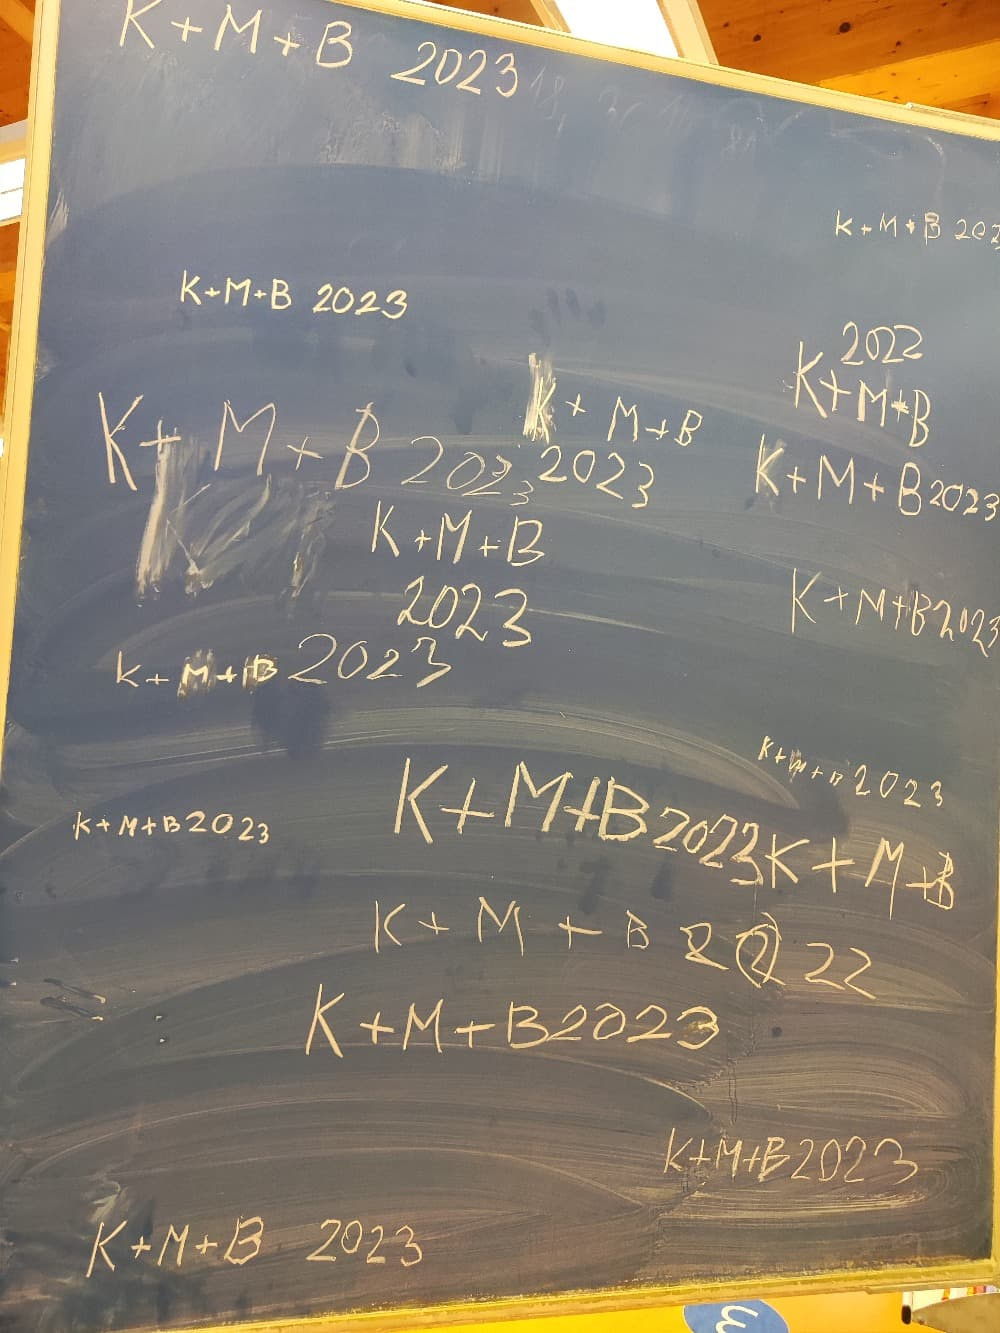 K+M+B 2023
K+M+B 202
K+M+B 2023
2022
K+M+B
K+M+B 2023
K+M+B
2023
K+M+B 2023
K+M+B
2023
K+M+B 2023
K+M+B 2023
K+M+B 2023
K+M+B 2023
K+M+B 2023
K+M+B
K+M+B 2022
K+M+B 2023
K+M+B 2023
K+M+B 2023